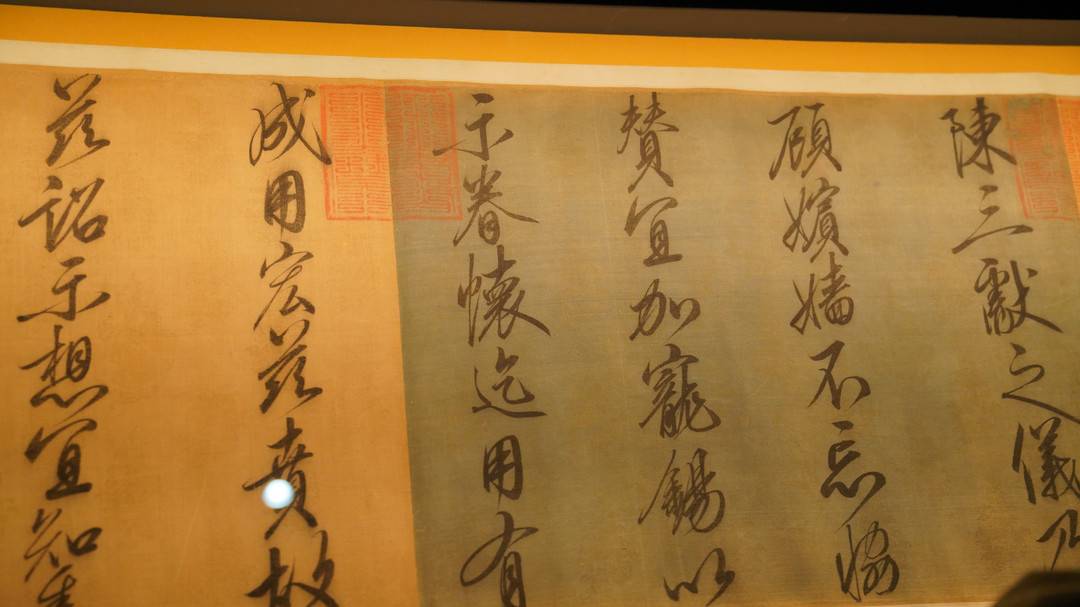 陳三獻之儀乃
顧嬪嬙不忘協
贊宜加寵錫以
示眷懷迄用有
成用宏茲賁故
茲詔示想宜知悉